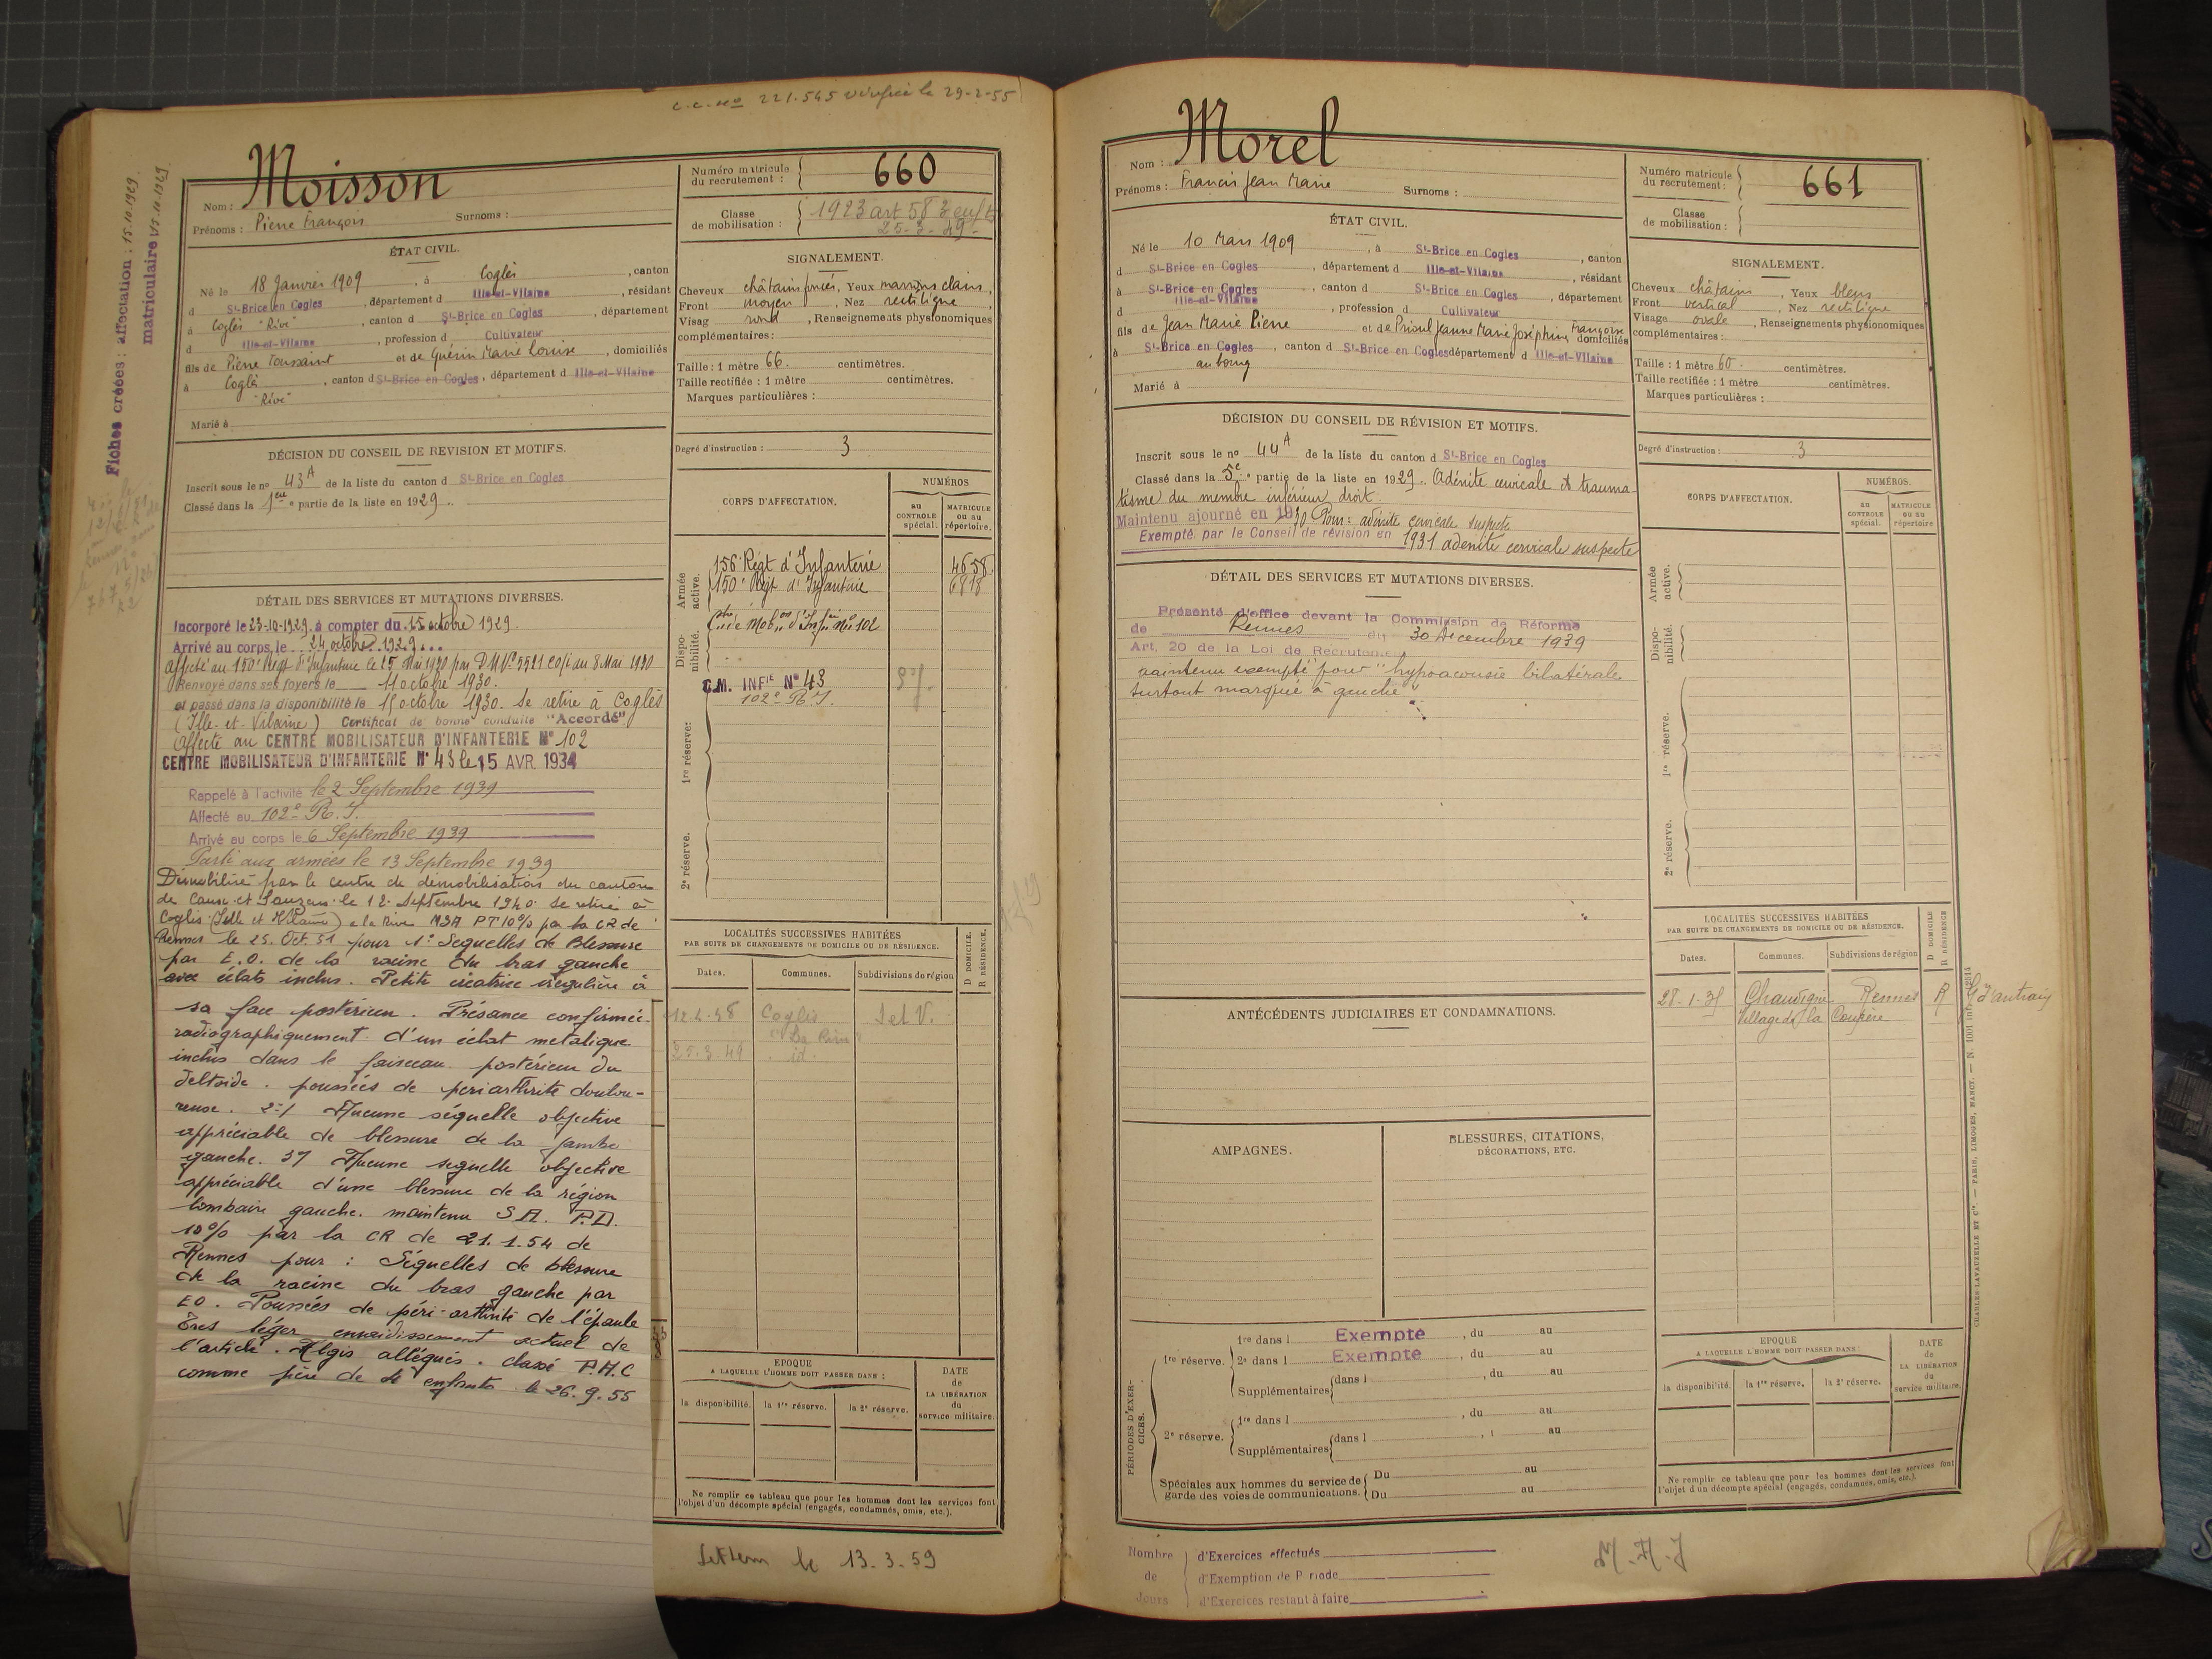 c.c. no 221.545 vérifiée le 29-2-55
Fiches créées : affectation : 15.10.1929
matriculaire 15.10.1929
Nom : Moisson
Prénoms : Pierre François Surnoms :
ÉTAT CIVIL.
Né le 18 Janvier 1909, à Coglès, canton
d St-Brice en Cogles, département d Ille-et-Vilaine, résidant
à Coglès "Rivé", canton d St-Brice en Cogles, département
d Ille-et-Vilaine, profession d Cultivateur
fils de Pierre Toussaint et de Guérin Marie Louise, domiciliés
à Coglès, canton d St-Brice en Cogles, département d Ille-et-Vilaine
"Rivé"
Marié à
DÉCISION DU CONSEIL DE REVISION ET MOTIFS.
Inscrit sous le no 43 A de la liste du canton d St-Brice en Cogles
Classé dans la 1ère partie de la liste en 1929.
DÉTAIL DES SERVICES ET MUTATIONS DIVERSES.
Incorporé le 23-10-1929 à compter du 15 octobre 1929.
Arrivé au corps le 24 octobre 1929...
Affecté au 150e Régt d'Infanterie le 15 Mai 1930 par DM No 5521 du 8 Mai 1930
Renvoyé dans ses foyers le 11 octobre 1930.
et passé dans la disponibilité le 15 octobre 1930. Se retire à Coglès
(Ille-et-Vilaine) Certificat de bonne conduite "Accordé"
Affecté au CENTRE MOBILISATEUR D'INFANTERIE No 102
CENTRE MOBILISATEUR D'INFANTERIE No 43 le 15 AVR. 1934
Rappelé à l'activité le 2 Septembre 1939
Affecté au 102e R.I.
Arrivé au corps le 6 Septembre 1939
Parti aux armées le 13 Septembre 1939
Démobilisé par le centre de démobilisation du canton
de le 12 Septembre 1940 se retire à
Coglès (Ille et Vilaine) PT 10% par la CR de
Rennes le 25. Oct. 51 pour 1° Sequelles de Blessure
par E.O. de la racine du bras gauche
avec éclats inclus. Petite cicatrice irrégulière à
sa face postérieure. Présence confirmée
radiographiquement d'un éclat metalique
inclus dans le faisceau postérieur du
deltoide. poussées de periarthrite doulou-
reuse. 2°/ Aucune séquelle objective
appréciable de blessure de la jambe
gauche. 3°/ Aucune sequelle objective
appréciable d'une blessure de la région
lombaire gauche. maintenu S A. P.D.
10% par la CR de 21. 1. 54 de
Rennes pour : Séquelles de blessure
de la racine du bras gauche par
EO. Poussées de péri-arthrite de l'épaule
Très léger enraidissement actuel de
l'article. Algies alléguées. classé P.A.C
comme père de enfants le 26. 9. 55
Numéro matricule
du recrutement : 660
Classe
de mobilisation : 1923 art 58
25-3-49
SIGNALEMENT.
Cheveux châtains foncés, Yeux marrons clairs,
Front moyen, Nez rectiligne,
Visage rond, Renseignements physionomiques
complémentaires :
Taille : 1 mètre 66. centimètres.
Taille rectifiée : 1 mètre centimètres.
Marques particulières :
Degré d'instruction : 3
CORPS D'AFFECTATION.
NUMÉROS
au CONTROLE spécial.
MATRICULE ou au répertoire.
Armée active.
156e Régt d'Infanterie 4658
150e Régt d'Infanterie 6818
Disponibilité.
Ctre Mobon d'Infie No 102
C.M. INFIE No 43
102e R.I.
1re réserve.
2e réserve.
LOCALITÉS SUCCESSIVES HABITÉES
PAR SUITE DE CHANGEMENTS DE DOMICILE OU DE RÉSIDENCE.
D DOMICILE
R RÉSIDENCE.
Dates. Communes. Subdivisions de région
Coglès I et V.
25.3.49 id.
EPOQUE
A LAQUELLE L'HOMME DOIT PASSER DANS :
la disponibilité. la 1re réserve. la 2e réserve.
DATE
de
LA LIBÉRATION
du
service militaire.
Ne remplir ce tableau que pour les hommes dont les services font
l'objet d'un décompte spécial (engagés, condamnés, omis, etc.).
le 13.3.59
Nom : Morel
Prénoms : Francis Jean Marie Surnoms :
ÉTAT CIVIL.
Né le 10 Mars 1909, à St-Brice en Cogles, canton
d St-Brice en Cogles, département d Ille-et-Vilaine, résidant
à St-Brice en Cogles, canton d St-Brice en Cogles, département
d Ille-et-Vilaine, profession d Cultivateur
fils de Jean Marie Pierre et de Prioul Jeanne Marie Joséphine Françoise domiciliés
à St-Brice en Cogles, canton d St-Brice en Cogles département d Ille-et-Vilaine
au bourg
Marié à
DÉCISION DU CONSEIL DE RÉVISION ET MOTIFS.
Inscrit sous le no 44 A de la liste du canton d St-Brice en Cogles
Classé dans la 5e partie de la liste en 1929. Adénite cervicale et trauma-
tisme du membre inférieur droit.
Maintenu ajourné en 1930 Pour : adénite cervicale suspecte
Exempté par le Conseil de révision en 1931 adénite cervicale suspecte
DÉTAIL DES SERVICES ET MUTATIONS DIVERSES.
Présenté d'office devant la Commission de Réforme
de Rennes du 30 Décembre 1939
Art. 20 de la Loi de Recrutement
maintenu exempté pour "hypoacousie bilatérale
surtout marquée à gauche"
ANTÉCÉDENTS JUDICIAIRES ET CONDAMNATIONS.
AMPAGNES.
BLESSURES, CITATIONS,
DÉCORATIONS, ETC.
PÉRIODES D'EXERCICES.
1re réserve. 1re dans l Exempté, du au
2e dans l Exempté, du au
Supplémentaires dans l , du au
2e réserve. 1re dans l , du au
Supplémentaires dans l au
Spéciales aux hommes du service de Du au
garde des voies de communications. Du au
Nombre de Jours
d'Exercices effectués
d'Exemption de P riode
d'Exercices restant à faire
Numéro matricule
du recrutement : 661
Classe
de mobilisation :
SIGNALEMENT.
Cheveux châtains, Yeux bleus
Front vertical, Nez rectiligne
Visage ovale, Renseignements physionomiques
complémentaires :
Taille : 1 mètre 60. centimètres.
Taille rectifiée : 1 mètre centimètres.
Marques particulières :
Degré d'instruction : 3
CORPS D'AFFECTATION.
NUMÉROS.
au CONTROLE spécial.
MATRICULE ou au répertoire
Armée active.
Disponibilité.
1re réserve.
2e réserve.
LOCALITÉS SUCCESSIVES HABITÉES
PAR SUITE DE CHANGEMENTS DE DOMICILE OU DE RÉSIDENCE.
D DOMICILE
R RÉSIDENCE
Dates. Communes. Subdivisions de région
28-1-35 Rennes R d'antrain
Village de la
EPOQUE
A LAQUELLE L'HOMME DOIT PASSER DANS :
la disponibilité. la 1re réserve. la 2e réserve.
DATE
de
LA LIBÉRATION
du
service militaire.
Ne remplir ce tableau que pour les hommes dont les services font
l'objet d'un décompte spécial (engagés, condamnés, omis, etc.).
CHARLES-LAVAUZELLE ET Cie. — PARIS, LIMOGES, NANCY.